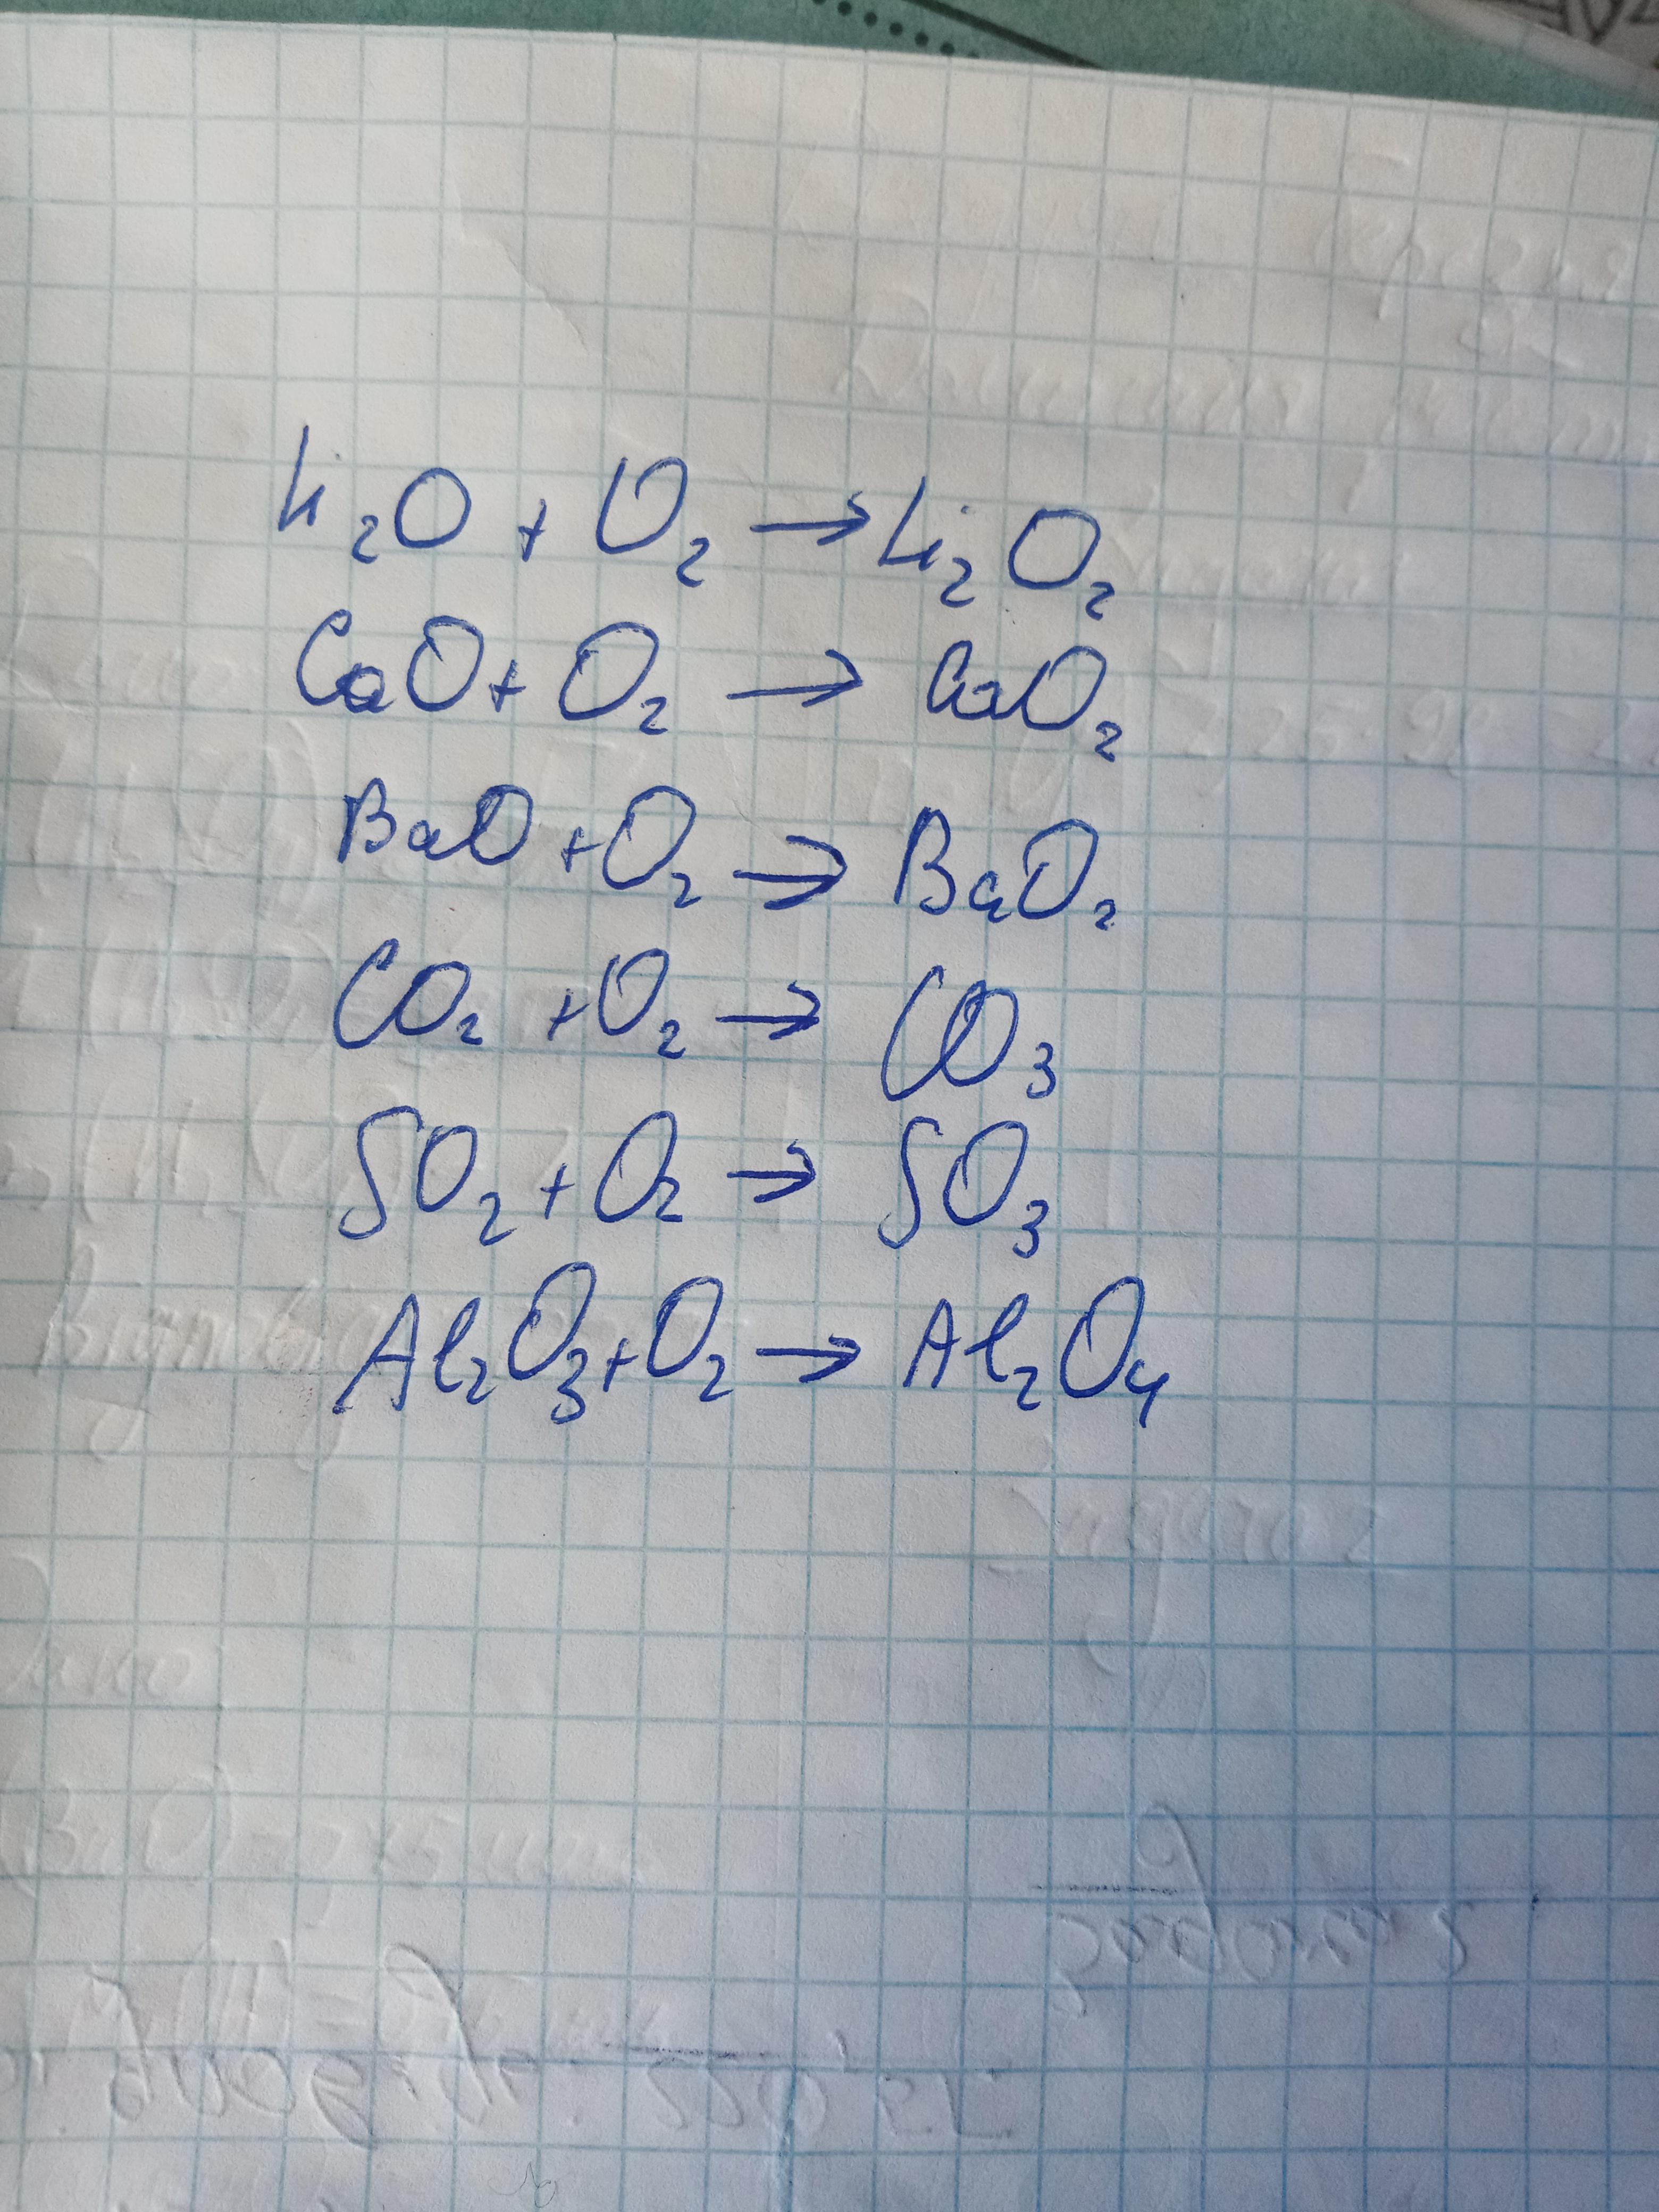 Li₂O + O₂ → Li₂O₂
CaO + O₂ → CaO₂
BaO + O₂ → BaO₂
CO₂ + O₂ → CO₃
SO₂ + O₂ → SO₃
Al₂O₃ + O₂ → Al₂O₄